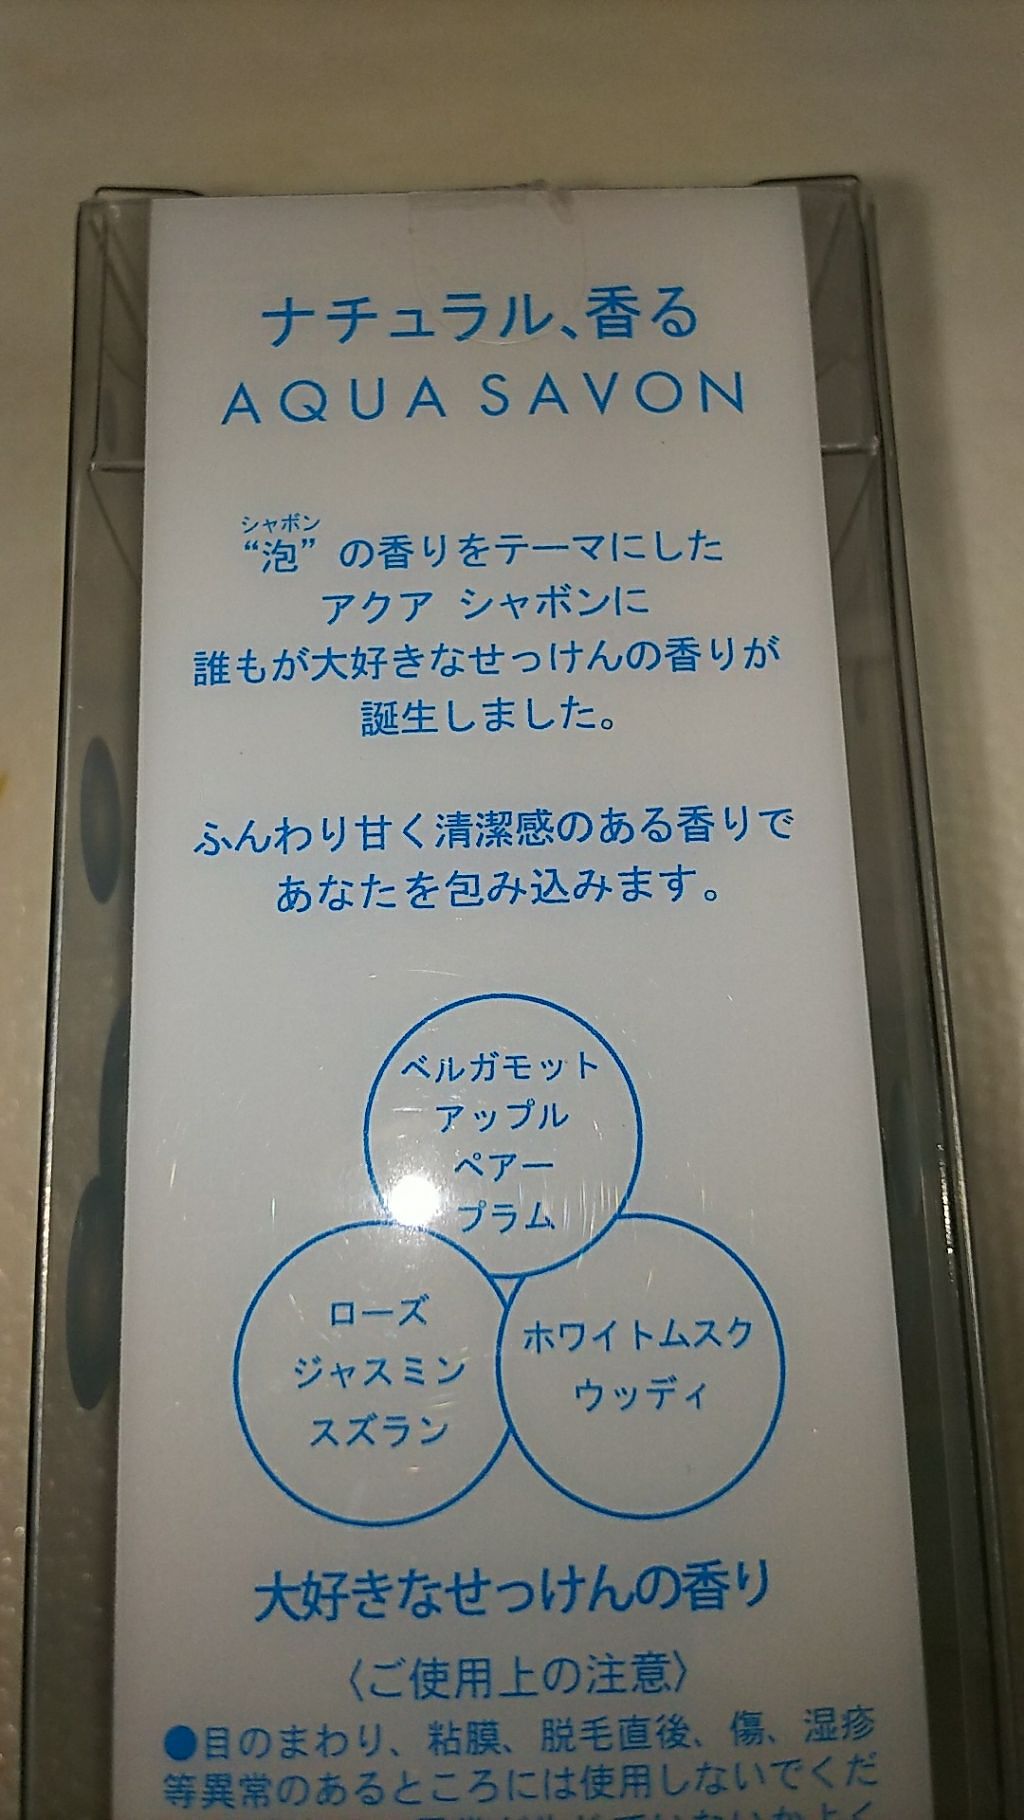 ナチュラル、香る
AQUA SAVON
シャボン
“泡” の香りをテーマにした
アクア シャボンに
誰もが大好きなせっけんの香りが
誕生しました。
ふんわり甘く清潔感のある香りで
あなたを包み込みます。
ベルガモット
アップル
ペアー
プラム
ローズ
ジャスミン
スズラン
ホワイトムスク
ウッディ
大好きなせっけんの香り
〈ご使用上の注意〉
●目のまわり、粘膜、脱毛直後、傷、湿疹
等異常のあるところには使用しないでくだ